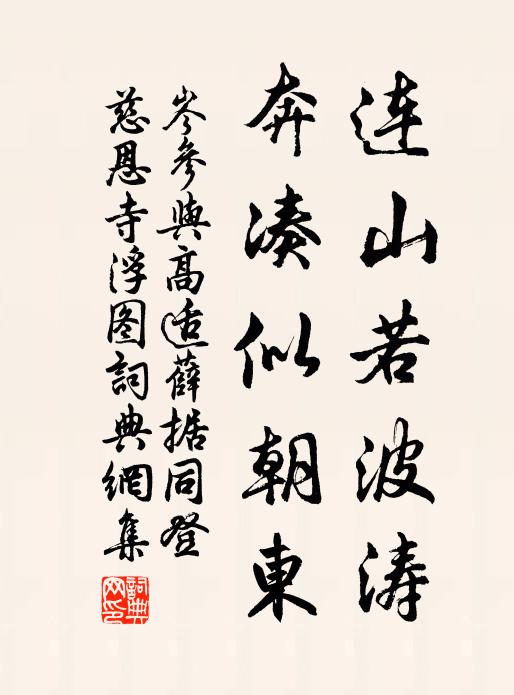 连山若波涛
奔凑似朝東
岑參與高适薛据同登
慈恩寺浮图詞典網集
詞典
网印